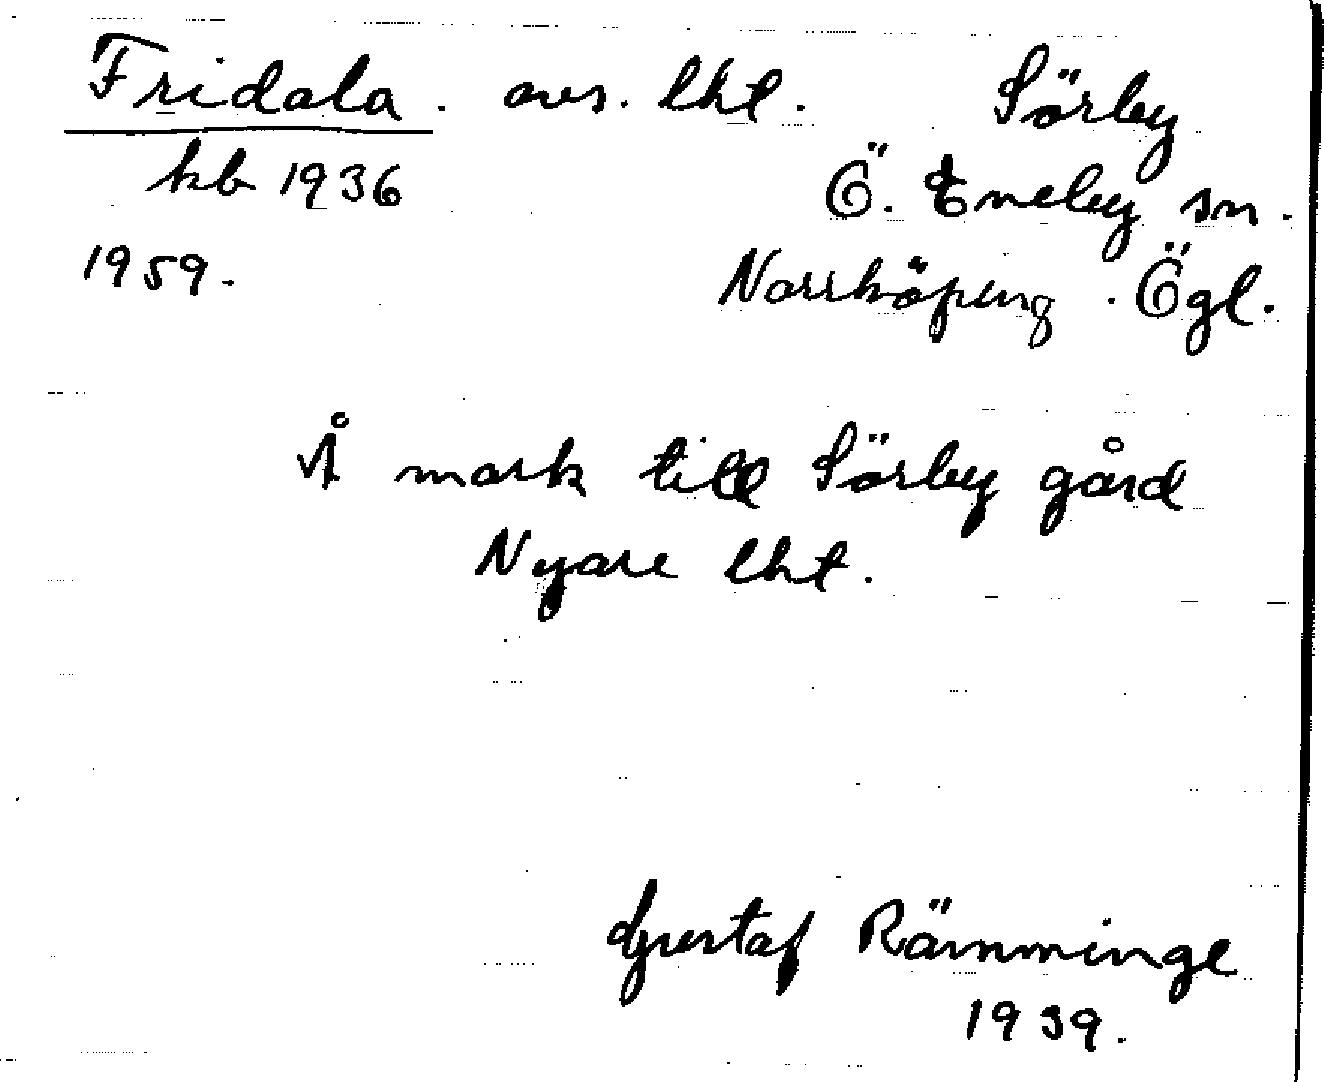 Fridala. avs. lht. Sörby
kb 1936 Ö. Eneby sn.
1959. Norrköping. Ögl.
Å mark till Sörby gård
Nyare lht.
Gustaf Rämminge
1959.